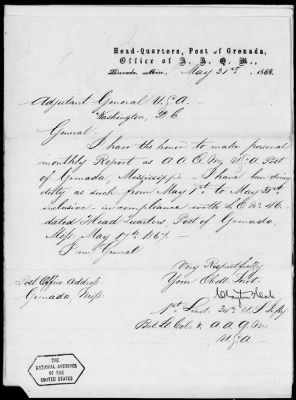 Head-Quarters, Post of Grenada,
Office of A. A. Q. M.,
Grenada, Miss., May 31st, 1868.
Adjutant General U.S.A.
Washington, D.C.
General.
I have the honor to make personal
monthly Report as A.A.Q.M. Post
of Grenada Mississippi. I have been doing
duty as such from May 1st to May 31st
inclusive in compliance with S.O. No 46
dated Head quarters Post of Grenada
Miss May 17th 1867.
I am General
Very Respectfully
Your Obdt. Servt.
1st Lieut. 24th U.S. Infty
Bvt. Lt. Col. & A.A.Q.M.
U.S.A.
Post Office Address
Grenada, Miss.
THE NATIONAL ARCHIVES
OF THE
UNITED STATES